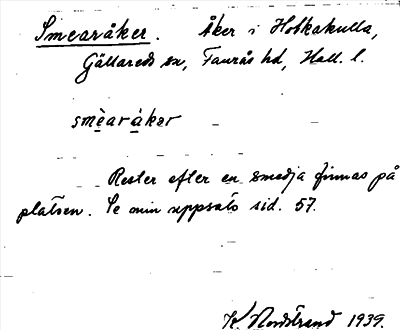 Smearåker. Åker i Hobkakulla,
Gällareds sn, Faurås hd, Hall. l.
smèaråkər
Rester efter en smedja finnas på
platsen. Se min uppsats sid. 57.
K. Nordstrand 1939.